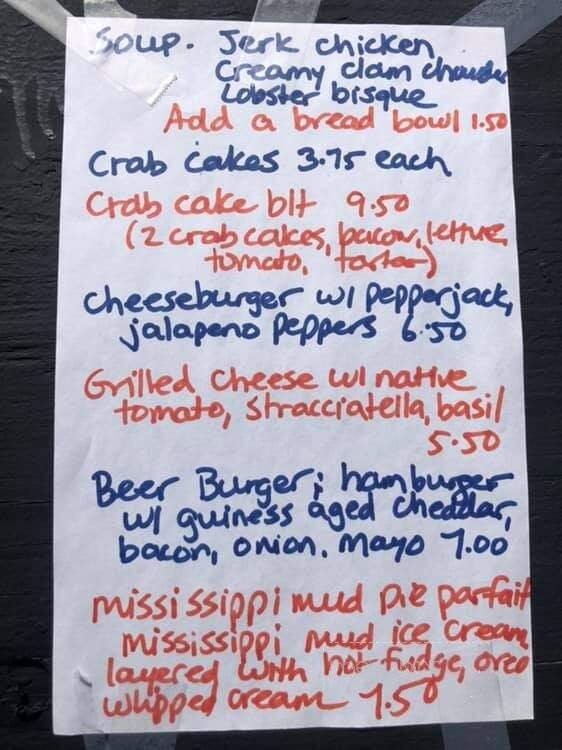 Soup. Jerk chicken
Creamy clam chowder
Lobster bisque
Add a bread bowl 1.50
Crab cakes 3.75 each
Crab cake blt 9.50
(2 crab cakes, bacon, lettuce,
tomato, tartar)
cheeseburger w/ pepperjack,
jalapeno peppers 6.50
Grilled cheese w/ native
tomato, stracciatella, basil
5.50
Beer Burger; hamburger
w/ guiness aged cheddar,
bacon, onion, mayo 7.00
mississippi mud pie parfait
mississippi mud ice cream
layered with hot fudge, oreo
whipped cream 7.50